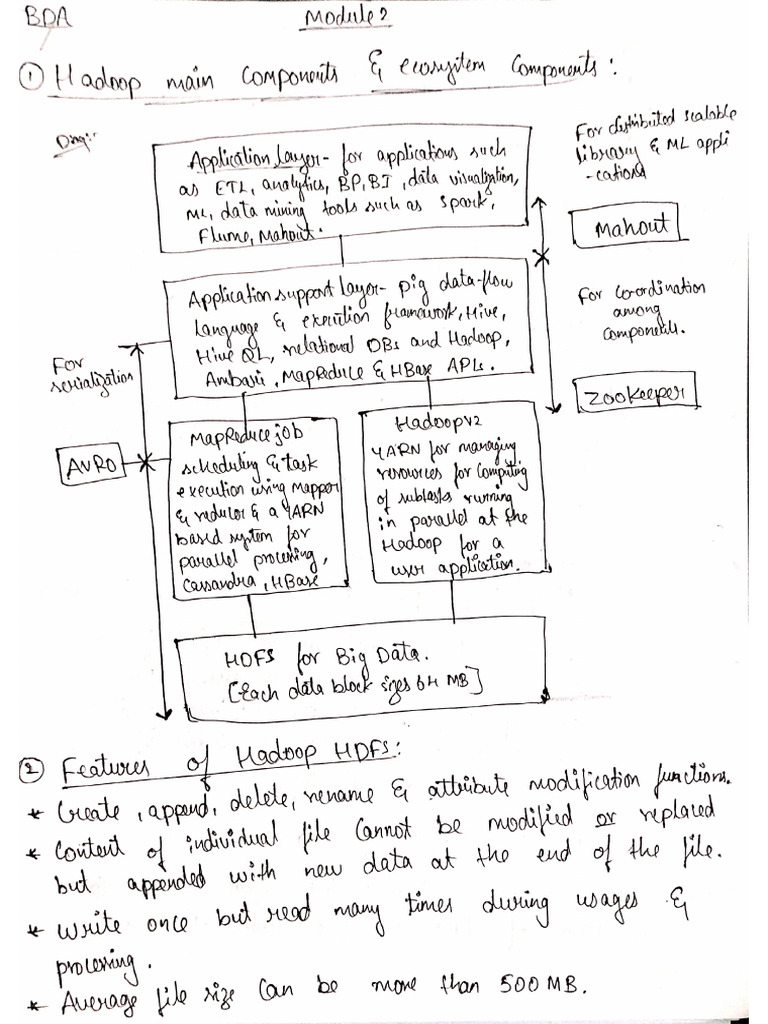 BDA
Module 2
① Hadoop main components & ecosystem components:
Diag:-
Application Layer- for applications such
as ETL, analytics, BP, BI, data visualization,
ML, data mining tools such as Spark,
Flume, Mahout.
For distributed scalable
library & ML appli
-cations
Mahout
Application support Layer- pig data-flow
Language & execution framework, Hive,
Hive QL, relational DBs and Hadoop,
Ambari, MapReduce & HBase APIs.
For co-ordination
among
components.
ZooKeeper
For
serialization
AVRO
MapReduce job
scheduling & task
execution using Mapper
& reducer & a YARN
based system for
parallel processing,
Cassandra, HBase
Hadoop v2
YARN for managing
resources for computing
of subtasks running
in parallel at the
Hadoop for a
user application.
HDFS for Big Data.
[Each data block sizes 64 MB]
② Features of Hadoop HDFS:
* Create, append, delete, rename & attribute modification functions.
* Content of individual file cannot be modified or replaced
but appended with new data at the end of the file.
* Write once but read many times during usages &
processing.
* Average file size can be more than 500 MB.